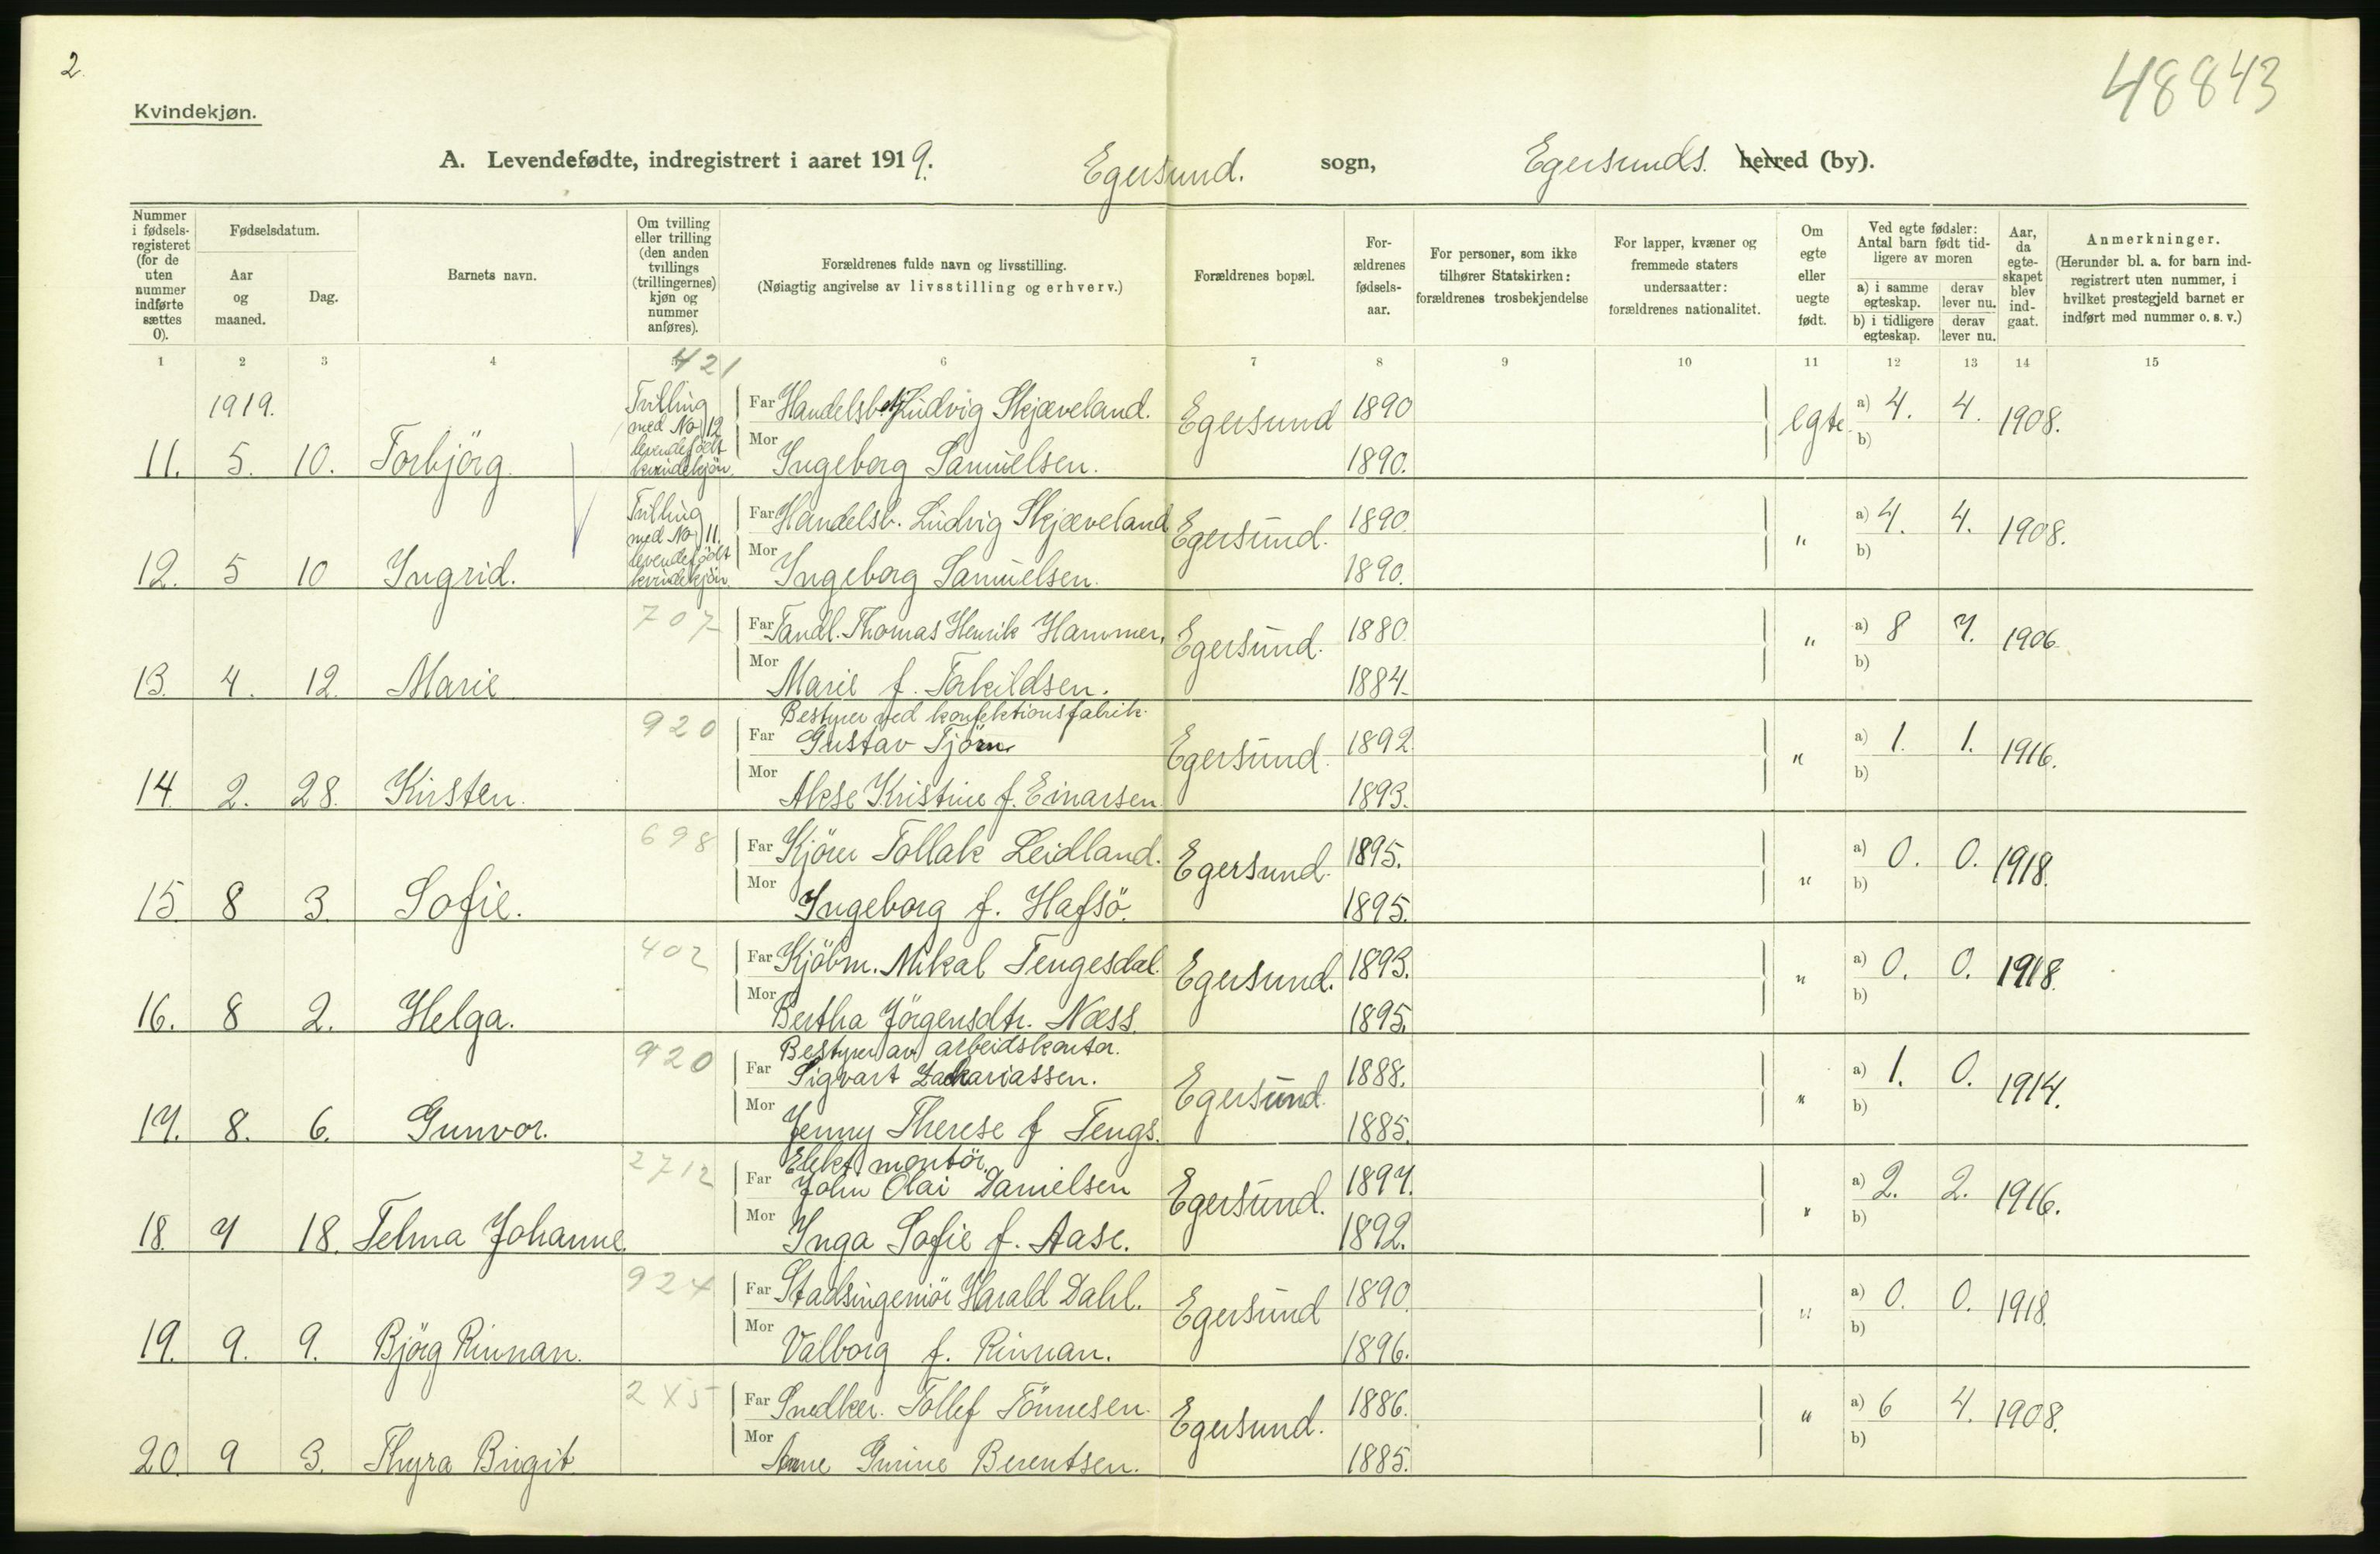 2.
48843
Kvindekjøn.
A. Levendefødte, indregistrert i aaret 1919. Egersund. sogn, Egersunds. herred (by).
Nummer i fødsels-registeret (for de uten nummer indførte sættes 0).
Fødselsdatum.
Aar og maaned.
Dag.
Barnets navn.
Om tvilling eller trilling (den anden tvillings (trillingernes) kjøn og nummer anføres).
Forældrenes fulde navn og livsstilling.
(Nøiagtig angivelse av livsstilling og erhverv.)
Forældrenes bopæl.
For-ældrenes fødsels-aar.
For personer, som ikke tilhører Statskirken: forældrenes trosbekjendelse
For lapper, kvæner og fremmede staters undersaatter: forældrenes nationalitet.
Om egte eller uegte født.
Ved egte fødsler: Antal barn født tid-ligere av moren
a) i samme egteskap. derav lever nu.
b) i tidligere egteskap. derav lever nu.
Aar, da egte-skapet blev ind-gaat.
Anmerkninger.
(Herunder bl. a. for barn ind-registrert uten nummer, i hvilket prestegjeld barnet er indført med nummer o. s. v.)
1 2 3 4 6 7 8 9 10 11 12 13 14 15
421
1919.
Tvilling med No 12 levendefödt kvindekjön.
Far Ludvig Skjæveland. Egersund 1890 egte a) 4. 4. 1908.
11. 5. 10. Torbjörg Mor Ingeborg Samuelsen. 1890. b)
Tvilling med No 11. levendefödt kvindekjön.
Far Handelsb. Ludvig Skjæveland Egersund. 1890. " a) 4. 4. 1908.
12. 5 10 Ingrid. Mor Ingeborg Samuelsen. 1890. b)
707
Far Tandl. Thomas Henrik Hammer, Egersund. 1880. " a) 8 7. 1906
13. 4. 12. Marie Mor Marie f. Torkildsen. 1884. b)
920
Bestyrer ved konfektionsfabrik.
Far Gustav Tjörn Egersund. 1892. " a) 1. 1. 1916.
14 2. 28. Kirsten. Mor Kristine f. Einarsen. 1893. b)
698
Far Kjörer Tollak Leidland. Egersund. 1895. " a) 0. 0. 1918.
15. 8 3. Sofie. Mor Ingeborg f. Hafsö. 1895. b)
402
Far Kjöbm. Mikal Tengesdal. Egersund. 1893. " a) 0. 0. 1918.
16. 8 2. Helga. Mor Bertha Jörgensdtr. Næss. 1895. b)
920
Bestyrer av arbeidskontor.
Far Sigvart Zakariassen. Egersund. 1888. " a) 1. 0. 1914.
17. 8. 6. Gunvor. Mor Jenny Therese f Tengs. 1885. b)
2712
Elekt. montör
Far John Olai Danielsen Egersund. 1897. " a) 2. 2. 1916.
18. 7 18. Telma Johanne. Mor Inga Sofie f. Aase. 1892. b)
924
Far Stadsingeniör Harald Dahl. Egersund 1890. " a) 0. 0. 1918.
19. 9. 9. Björg Rinnan. Mor Valborg f. Rinnan. 1896. b)
2X5
Far Snedker. Tollef Tönnesen. Egersund. 1886. " a) 6 4. 1908.
20. 9 3. Thyra Birgit Mor Anne Gurine Berentsen. 1885. b)